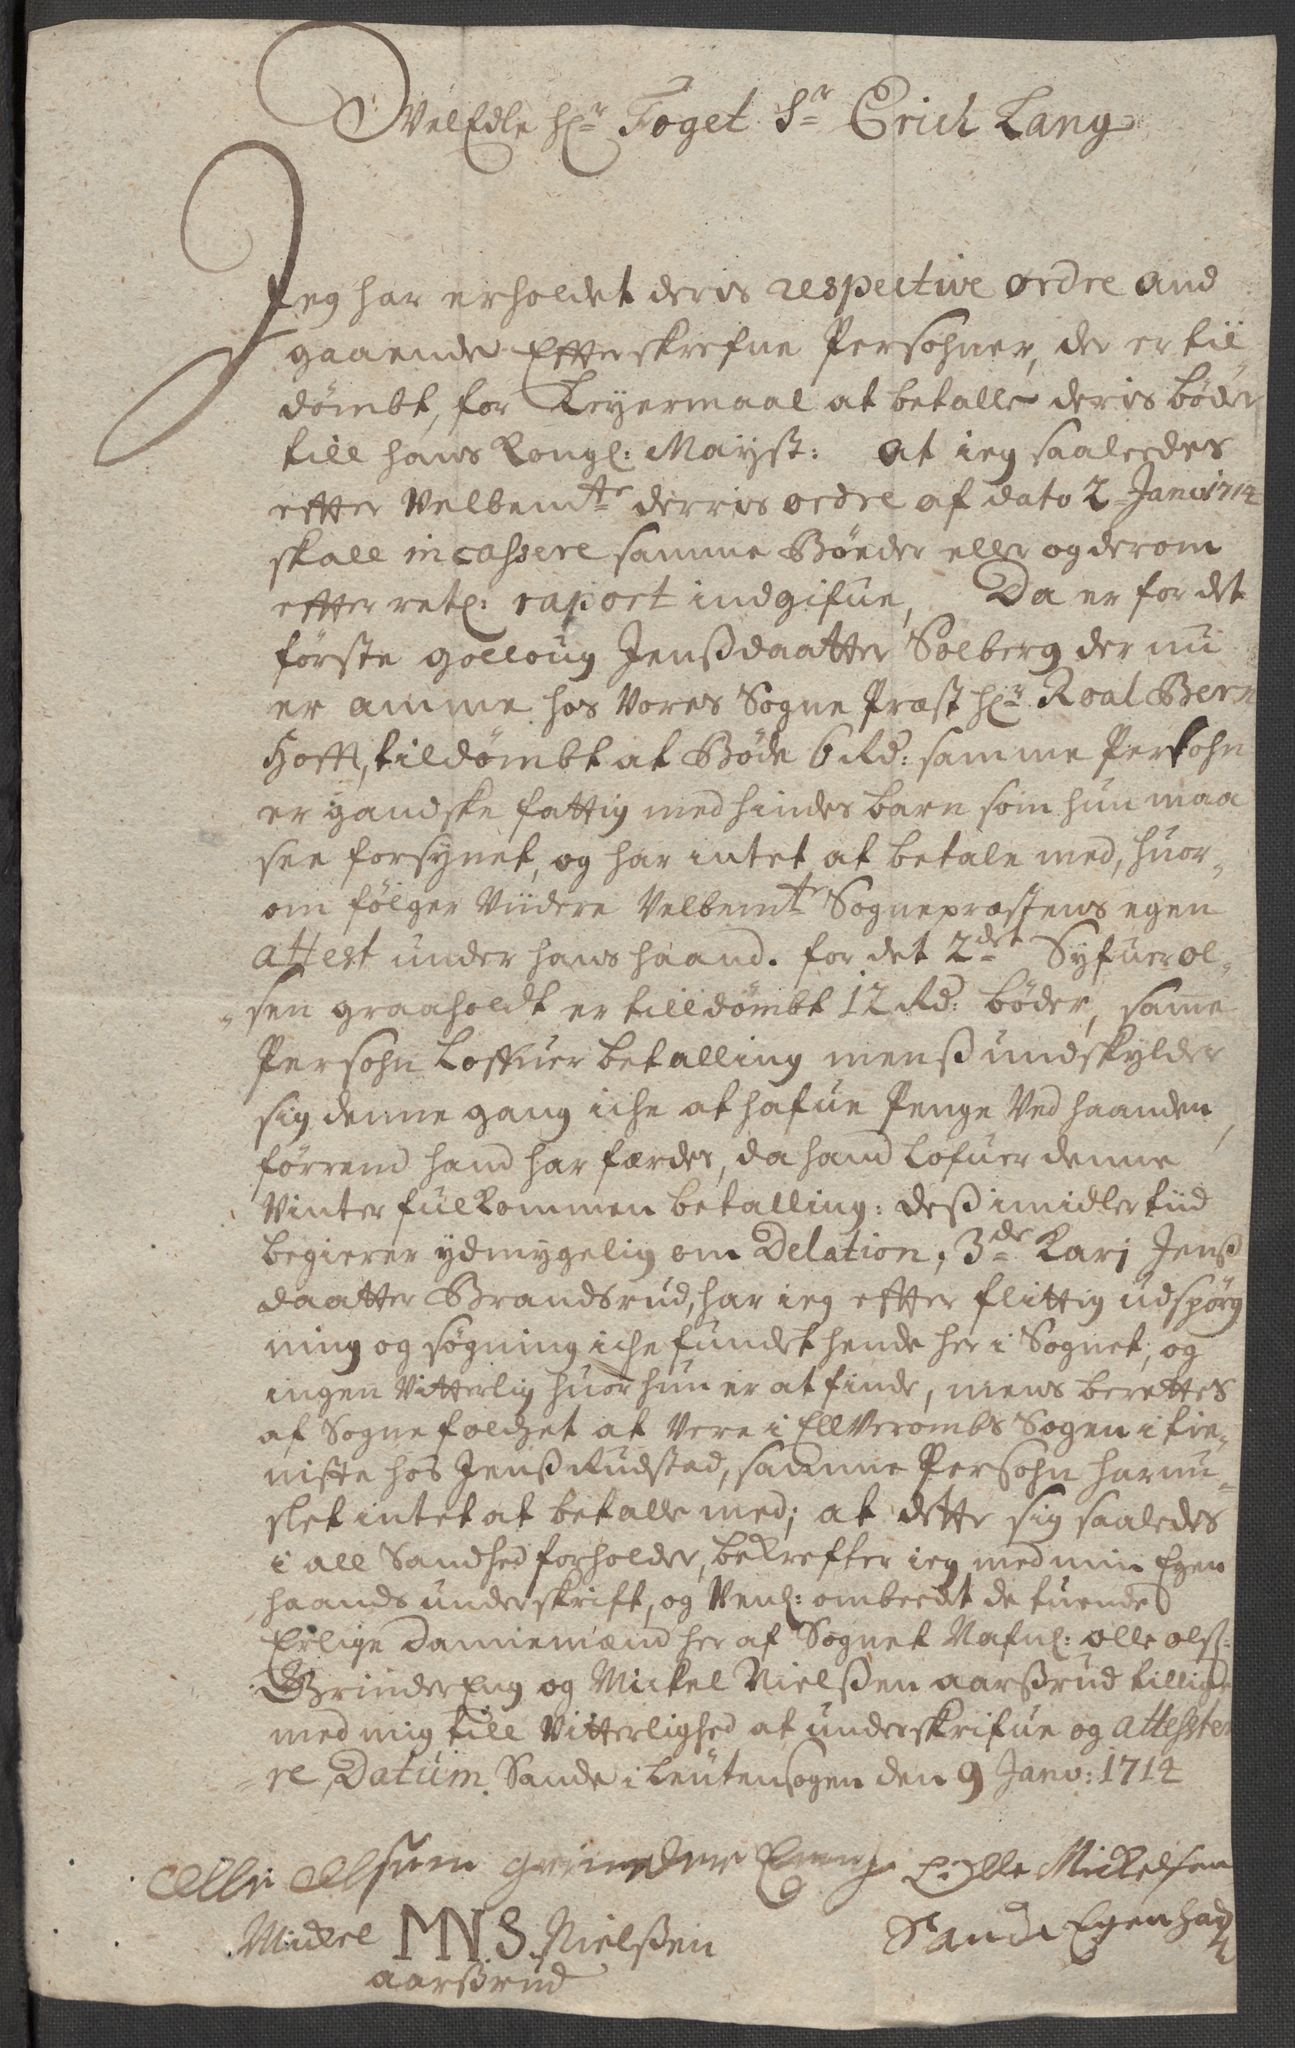 VelEdle hr Foget Sr Erich Lang
Jeg har erholdet deris respective ordre and
gaaende Efterskrefne Persohner, der er til
dömbt, for Leyermaal at betalle deris böder
till hans Kongl: Mayst: at ieg saaleedes
efter Velbemte derris ordre af dato 2 Janv 1714
skall incassere samme Bönder eller og derom
efterretl: raport indgifue, Da er for det
förste golloug Jenßdaatter Solberg der nu
er amme hos Vores Sogne Præst hr Roal Bern
Hofft, tildömbt at Böde 6 Rd: samme Persohn
er gandske fattig med hindes barn som hun maa
see forsynet, og har intet at betale med, huor-
om fölger Viidere Velbemte Sogneprestens egen
attest under hans haand. for det 2det Syfuer ol-
-sen graaholdt er tilldömbt 12 Rd: böder, same
Persohn Loffuer betalling menß undskylder
sig denne gang iche at hafue Penge Ved haanden,
förrend hand har færdes, da hand Lofuer denne
Vinter fulkommen betalling: deß imidlertiid
begierer ydmygelig om Delation, 3de Kari Jenß
daatter Brandsrud, har ieg effter flittig udspörg
ning og sögning iche fundet hende her i Sognet, og
ingen Vitterlig huor hun er at finde, mens berettes
af Sognefolchet at Vere i Ellverombs Sogen i tie-
niste hos Jenß Rudstad, samme Persohn har nu
slet intet at betalle med; at dette sig saaledes
i all Sandhed forholder, bekrefter ieg med min Egen
haands underskrift, og Venl: ombeedt de tuende
Erlige Dannemænd her af Sognet Nafnl: olle olß:
GrinderEng og Mickel Nielßen aarßrud tillige
med mig till Vitterlighed at underskrifue og attester
-re, Datum Sande i Leutensogen den 9 Janv: 1714
olle olsuen grinder Eng Olle Mickelsen
Mickel MNS Nielßen Sande Egenhad
aarßrud